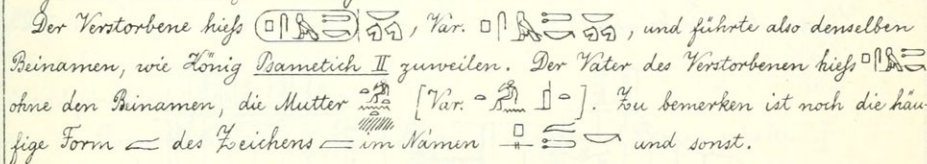 Der Verstorbene hieſs , Var. , und führte also denselben
Beinamen, wie König Psametich II zuweilen. Der Vater des Verstorbenen hieſs
ohne den Beinamen, die Mutter [Var. ]. Zu bemerken ist noch die häu-
fige Form des Zeichens im Namen und sonst.